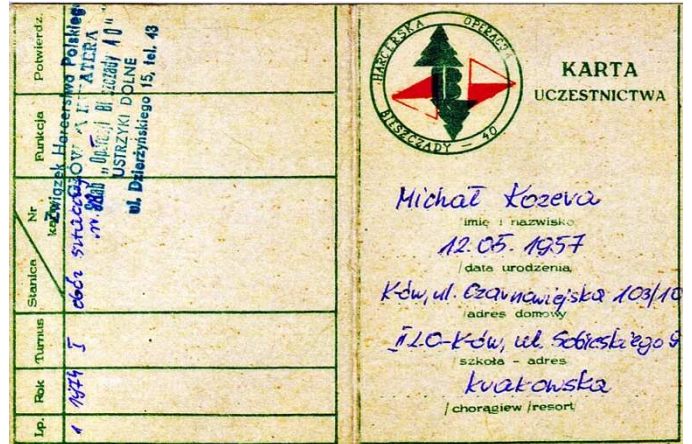 Lp. Rok Turnus Stanica Nr Funkcja Potwierdz.
1 1974 I obóz sztabowy
Związek Harcerstwa Polskiego
KWATERA
"Operacji Bieszczady 40"
USTRZYKI DOLNE
ul. Dzierżyńskiego 15, tel. 43
HARCERSKA OPERACJA
BIESZCZADY - 40
KARTA
UCZESTNICTWA
Michał Kozera
imię i nazwisko
12.05.1957
/data urodzenia
K-ów, ul. Czarnowiejska 103/10
/adres domowy
II LO-K-ów, ul. Sobieskiego 9
/szkoła - adres
krakowska
/chorągiew /resort/